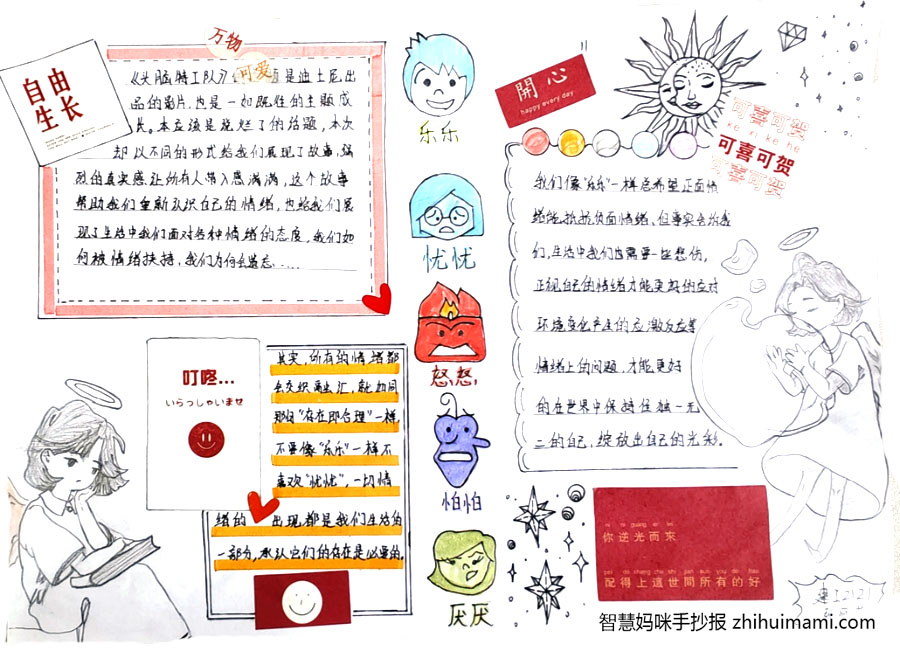 自由
生长
万物
可爱
《头脑特工队》
是迪士尼出
品的影片,也是一如既往的主题成
长。本应该是说烂了的话题,本次
却以不同的形式给我们展现了故事,强
烈的真实感让所有人带入感满满,这个故事
帮助我们重新认识自己的情绪,也给我们展
现了生活中我们面对各种情绪的态度,我们如
何被情绪扶持,我们为何会遗忘......
乐乐
忧忧
怒怒
怕怕
厌厌
開心
happy every day
可喜可贺
ke xi ke he
可喜可贺
可喜可贺
我们像“乐乐”一样总希望正面情
绪能抵抗负面情绪,但事实会给我
们,生活中我们也需要一些悲伤,
正视自己的情绪才能更好的应对
环境变化产生的应激反应等
情绪上的问题,才能更好
的在世界中保持住独一无
二的自己,绽放出自己的光彩.
叮咚...
いらっしゃいませ
其实,所有的情绪都
会交织画出汇,就如同
那句“存在即合理”一样,
不要像“乐乐”一样不
喜欢“忧忧”,一切情
绪的出现都是我们生活的
一部分,承认它们的存在是必要的。
你逆光而来
配得上這世間所有的好
智慧妈咪手抄报 zhihuimami.com